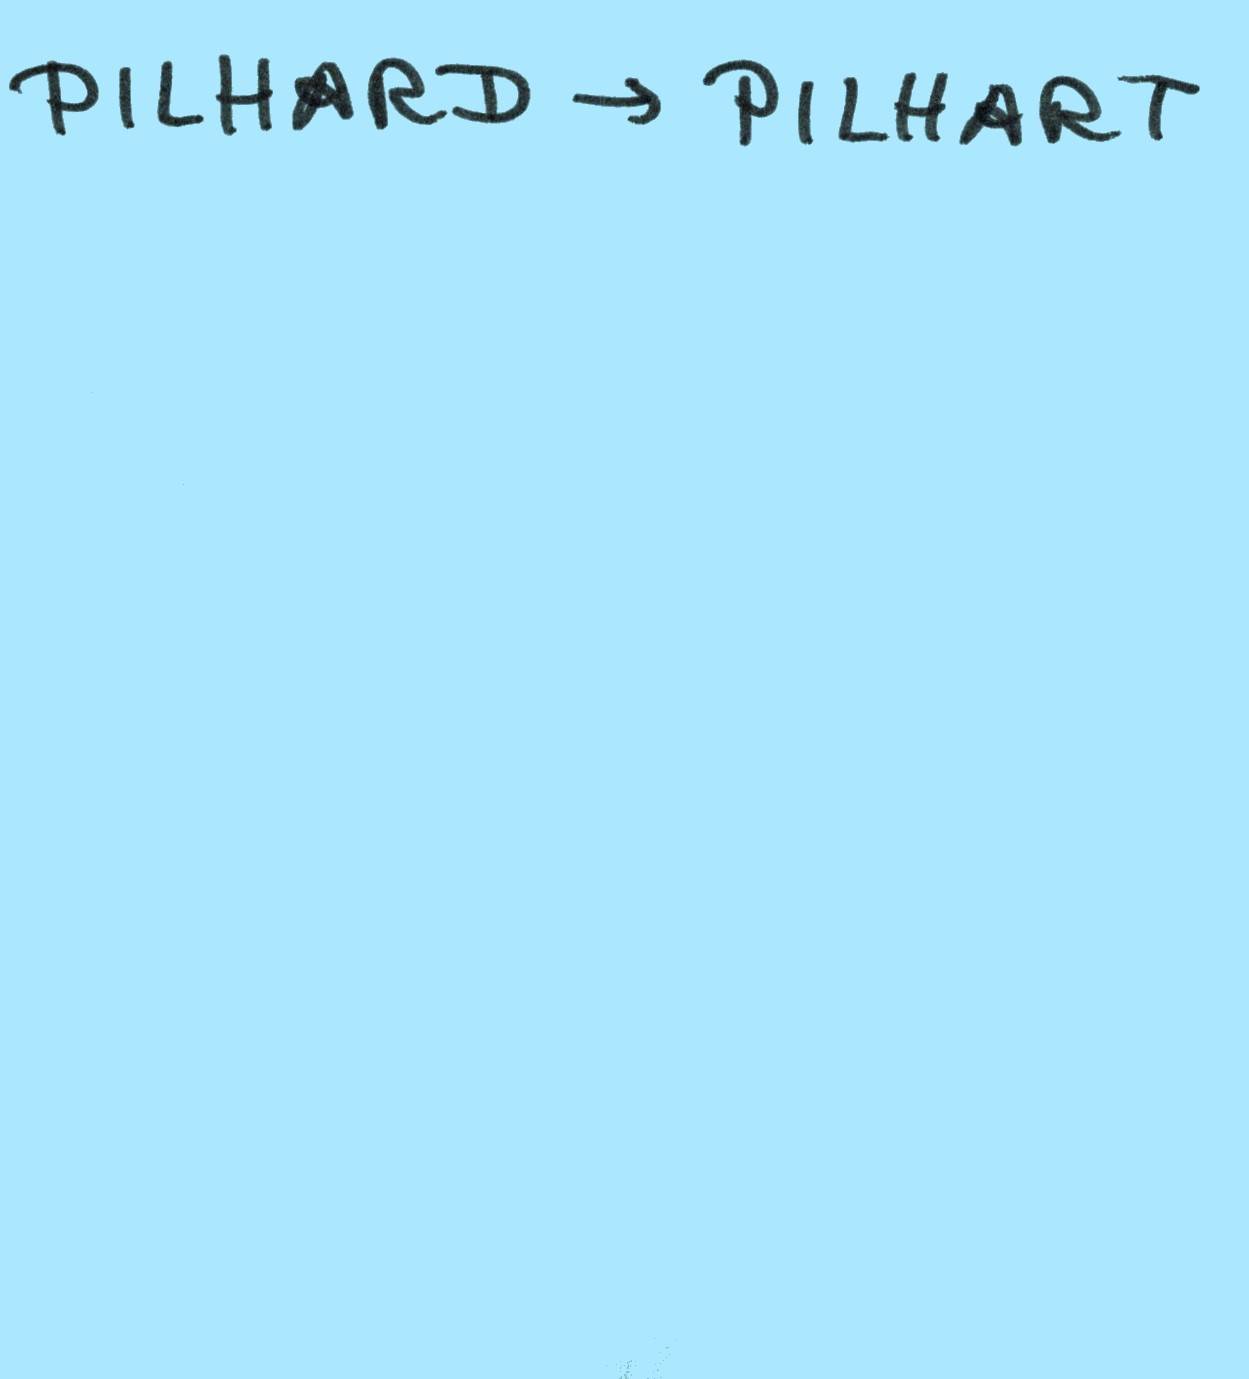 PILHARD → PILHART